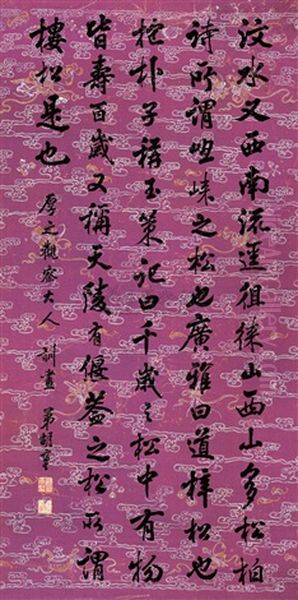 汶水又西南流逕徂徠山西山多松柏
詩所謂徂崍之松也廣雅曰道梓松也
抱朴子稱玉策記曰千歲之松中有物
皆壽百歲又稱天陵有偃蓋之松所謂
樓松是也
厚之觀察大人
訓畫
弟胡